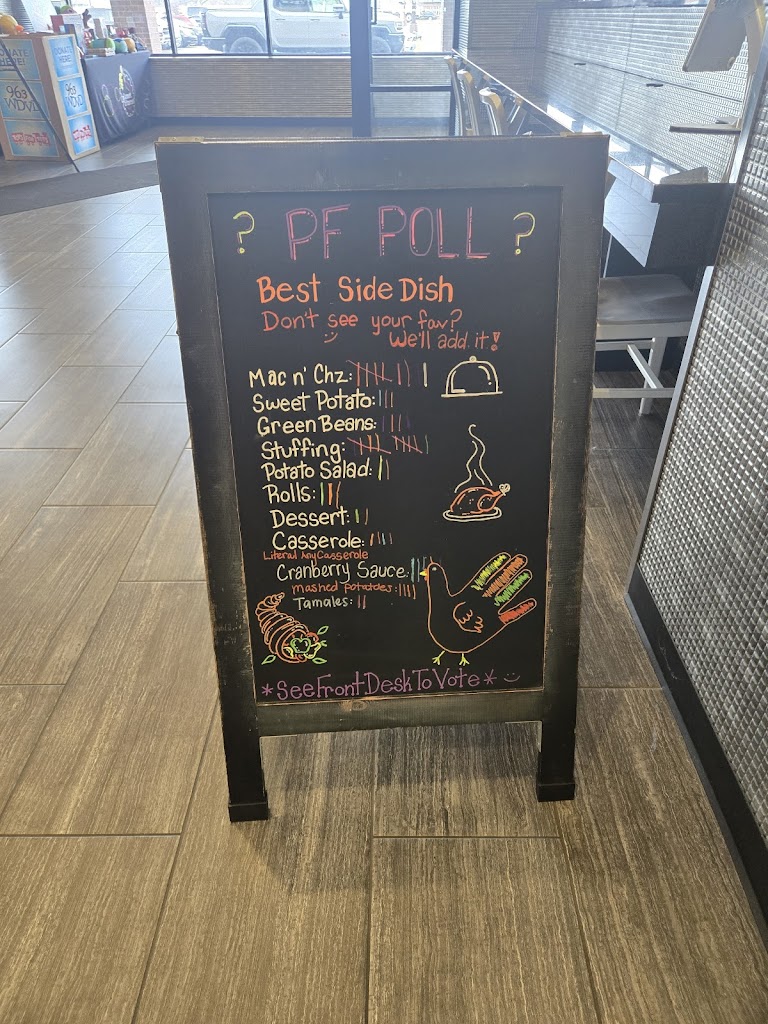 ? PF POLL ?
Best Side Dish
Don't see your fav?
We'll add it!
Mac n' Chz:
Sweet Potato:
Green Beans:
Stuffing:
Potato Salad:
Rolls:
Dessert:
Casserole:
Literal Any Casserole
Cranberry Sauce:
mashed potatoes:
Tamales:
*See Front Desk To Vote*
DONATE
HERE!
96.3
WDVD
96.3